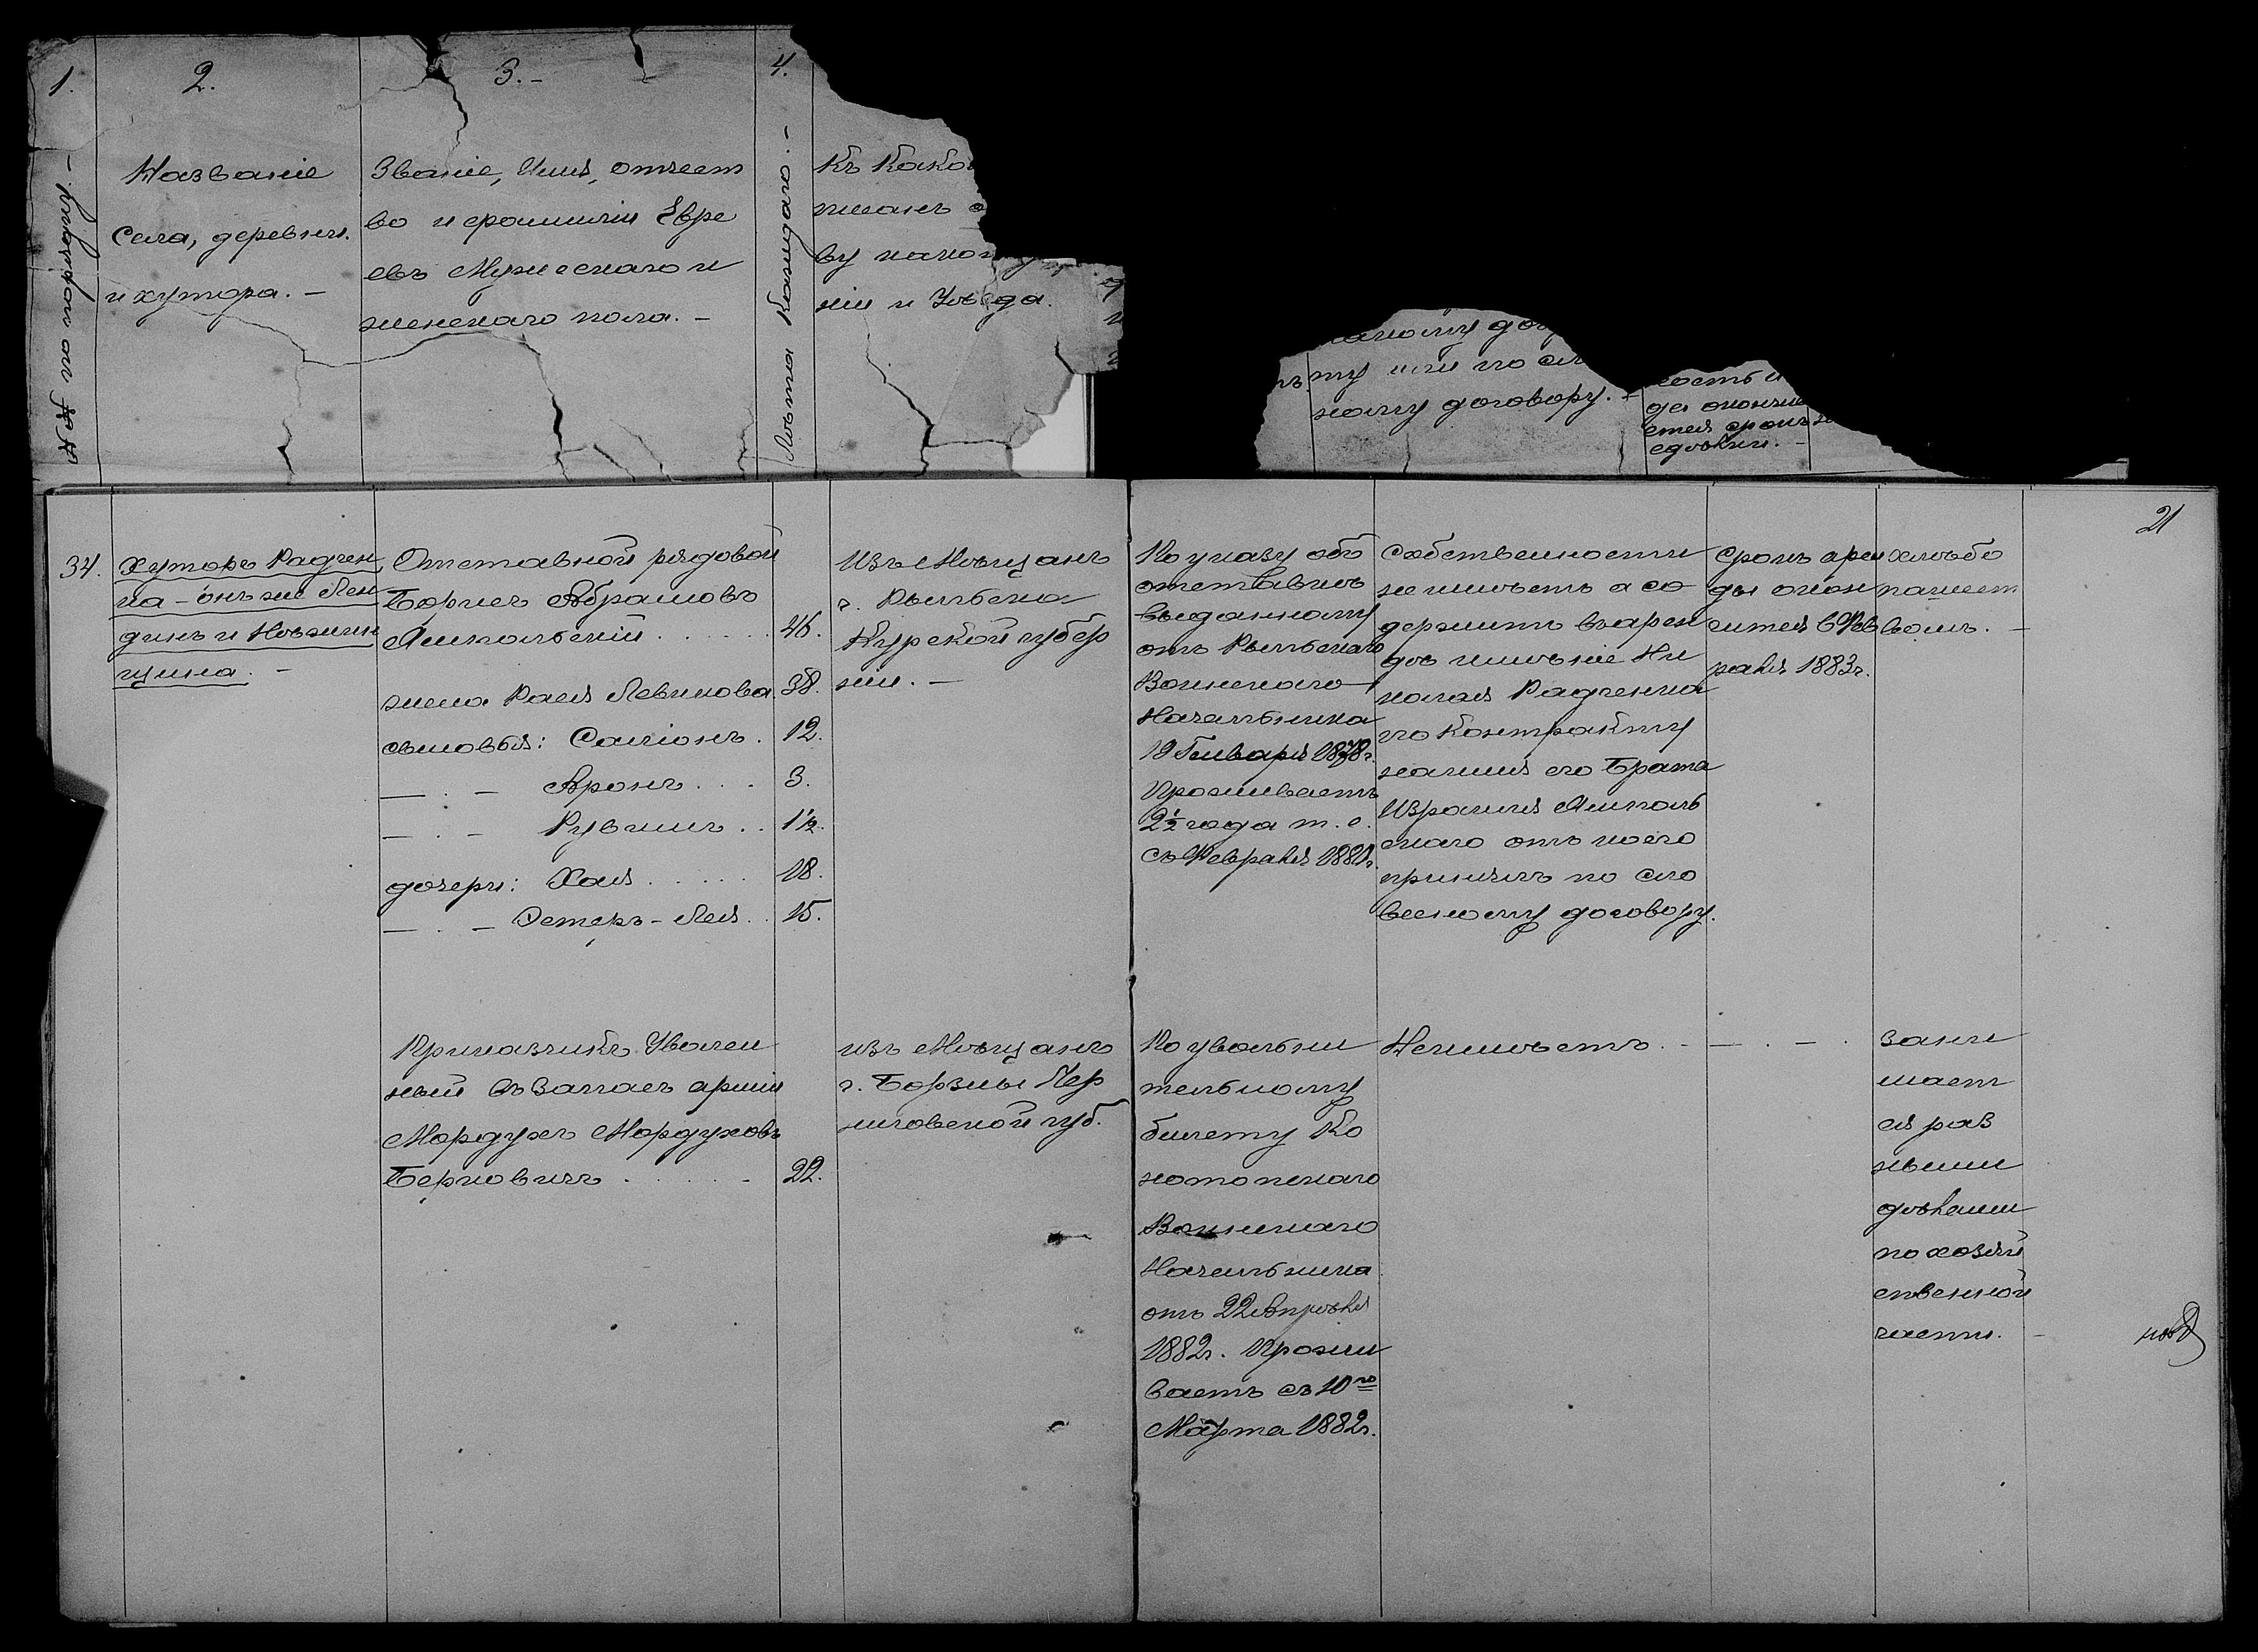 1.
2.
3. –
4.
№№ по порядку. –
Названіе
Села, деревни.
и хутора. –
Званіе, Имя, отчест
во и фамиліи Евре
евъ Мужескаго и
женскаго пола. –
Лѣта каждаго. –
Къ како
ніи и Уѣзда.
ту или по сл
ному договору. –
да окончи
34.
Хуторъ Радчен
ка – онъ же Лен
динъ и Новжин
щина. –
Отставной рядовой
Борисъ Абрамовъ
Ямпольскій . . . . . . 46.
жена Рася Левикова. 38.
сыновья: Саліонъ . 12.
— . — Аронъ . . . 3.
— . — Рувинъ . . 1½.
дочери: Хая . . . . . 18.
— . — Эстеръ-Лея . . 15.
Изъ Мѣщанъ
г. Рыльска
Курской губер
ніи. –
По указу объ
отставкѣ
выданному
отъ Рыльскаго
Воинскаго
Начальника
19 Января 1878 г.
Проживаетъ
2½ года т. е.
съ Февраля 1880 г.
Собственности
не имѣетъ а со
держитъ въ арен
дѣ имѣніе Ни
колая Радченка
по Контракту
нанятія его Брата
Израиля Ямполь
скаго отъ коего
принялъ по сло
весному договору.
Срокъ арен
ды окон
чится въ Фев
ралѣ 1883 г.
хлѣбо
пашест
вомъ. –
21
Приказчикъ Уволен
ный въ Запасъ арміи
Мордухъ Мордуховъ
Берковичъ . . . . . . 22.
изъ Мѣщанъ
г. Борзны Чер
ниговской губ.
По увольни
тельному
билету Ко
нотопскаго
Воинскаго
Начальника
отъ 22 Апрѣля
1882 г. Прожи
ваетъ съ 10го
Марта 1882 г.
Неимѣетъ. –
— . — .
зани
мает
ся раз
ными
дѣлами
по хозяй
ственной
части. –